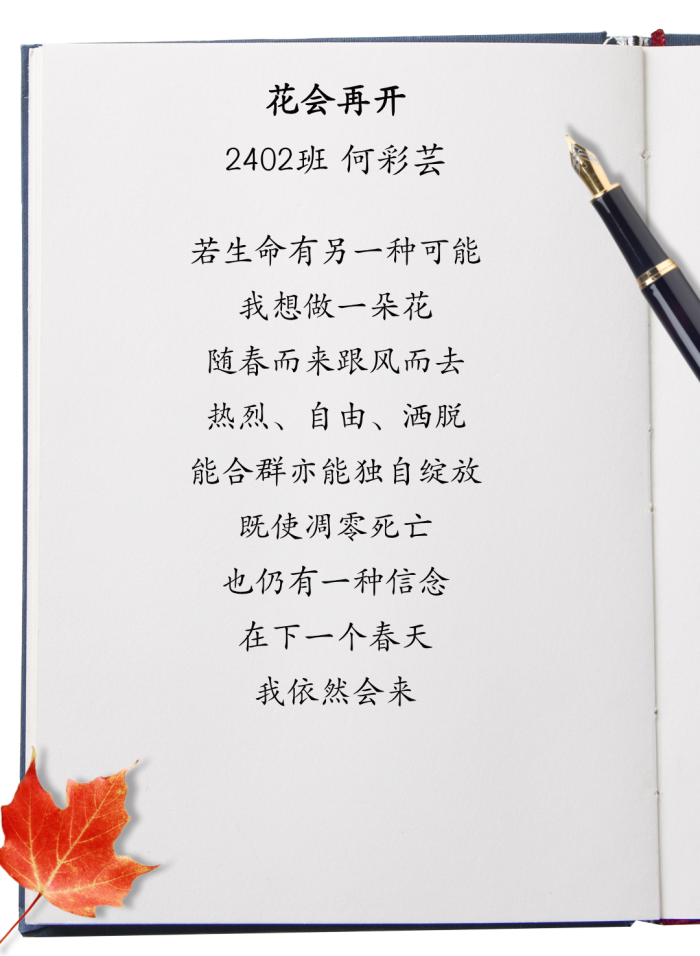 花会再开
2402班 何彩芸
若生命有另一种可能
我想做一朵花
随春而来跟风而去
热烈、自由、洒脱
能合群亦能独自绽放
既使凋零死亡
也仍有一种信念
在下一个春天
我依然会来